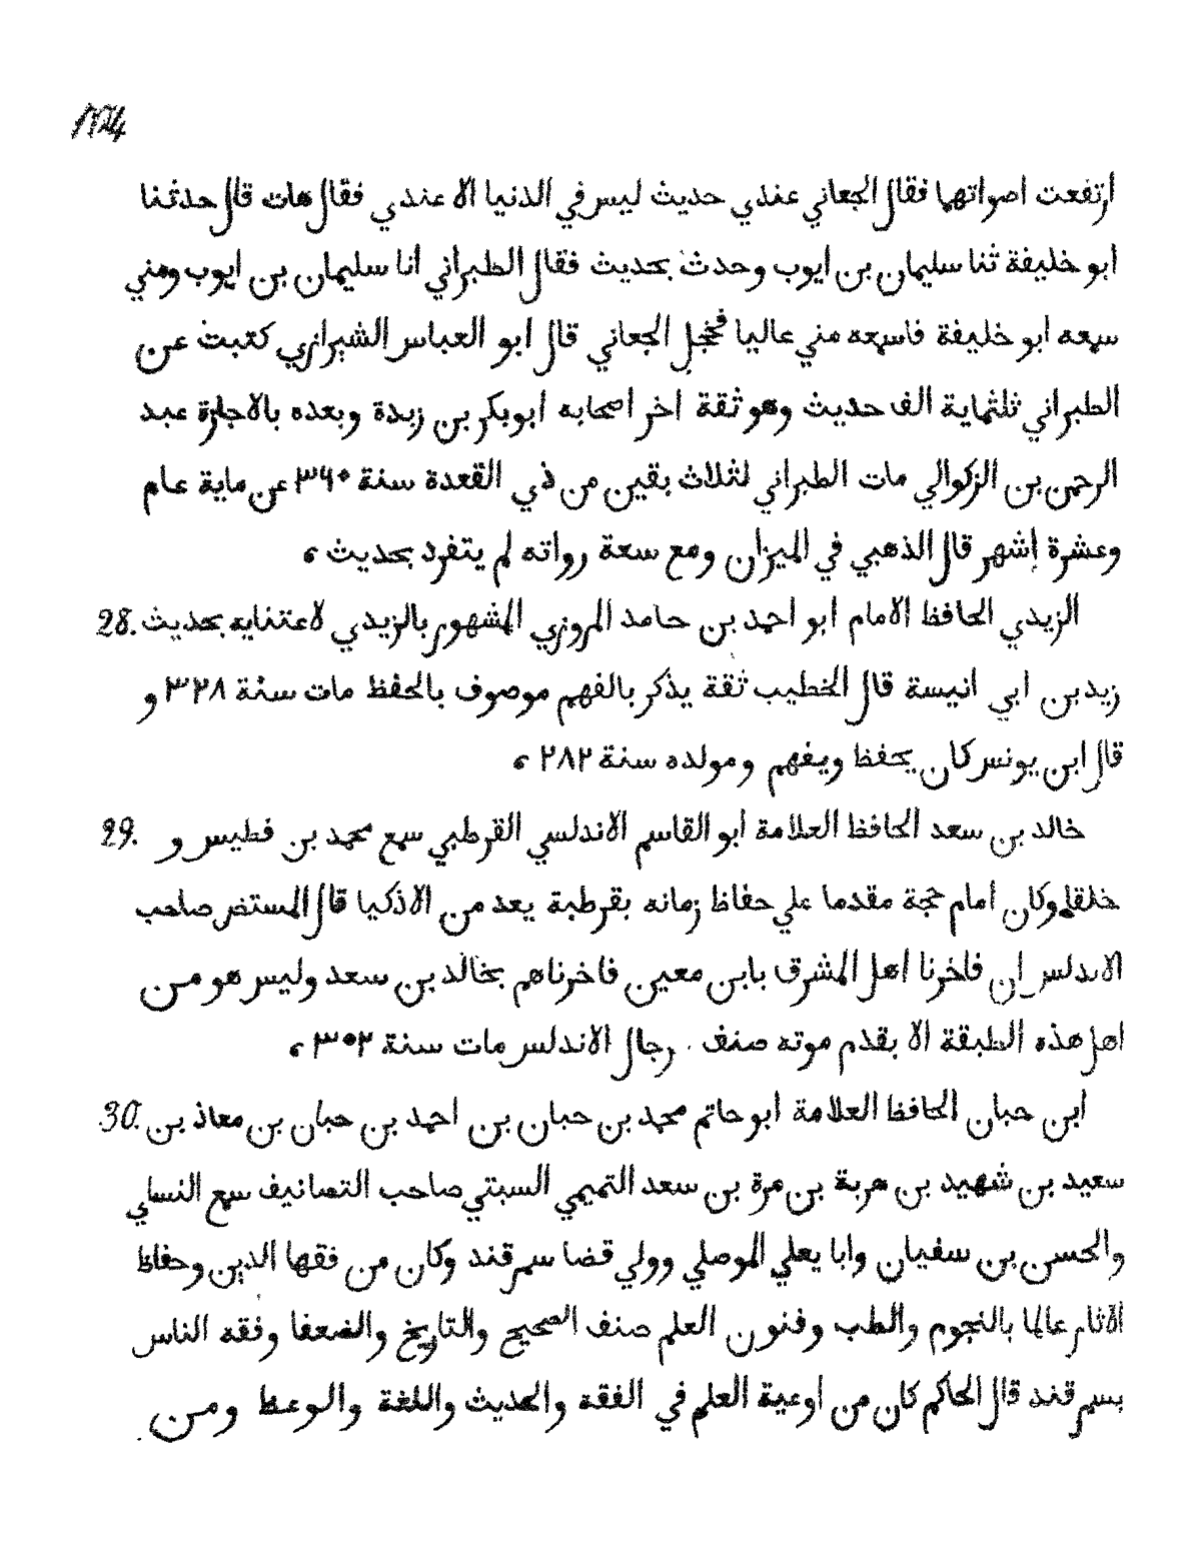 ارتفعت اصواتهما فقال الجعاني عندي حديث ليس في الدنيا الا عندي فقال هات قال حدثنا
ابو خليفة ثنا سليمان بن ايوب وحدث بحديث فقال الطبراني انا سليمان بن ايوب ومني
سمعه ابو خليفة فاسمعه مني عاليا فخجل الجعاني قال ابو العباس الشيرازي كتبت عن
الطبراني ثلثماية الف حديث وهو ثقة اخر اصحابه ابوبكر بن زيدة وبعده بالاجازة عبد
الرحمن بن الزكوالي مات الطبراني لثلاث بقين من ذي القعدة سنة ٣٦٠ عن ماية عام
وعشرة اشهر قال الذهبي في الميزان ومع سعة رواته لم يتفرد بحديث ،
28. الزيدي الحافظ الامام ابو احمد بن حامد المروزي المشهور بالزيدي لاعتنايه بحديث
زيد بن ابي انيسة قال الخطيب ثقة يذكر بالفهم موصوف بالحفظ مات سنة ٣٢٨ و
قال ابن يونس كان يحفظ ويفهم ومولده سنة ٢٨٢ ،
29. خالد بن سعد الحافظ العلامة ابو القاسم الاندلسي القرطبي سمع محمد بن فطيس و
خلقا وكان امام حجة مقدما علي حفاظ زمانه بقرطبة يعد من الاذكيا قال المستنصر صاحب
الاندلس ان فاخرنا اهل المشرق بابن معين فاخرناهم بخالد بن سعد وليس هو من
اهل هذه الطبقة الا بقدم موته صنف رجال الاندلس مات سنة ٣٥٢ ،
30. ابن حبان الحافظ العلامة ابو حاتم محمد بن حبان بن احمد بن حبان بن معاذ بن
سعيد بن شهيد بن هربة بن مرة بن سعد التميمي السبتي صاحب التصانيف سمع النسلي
والحسن بن سفيان وابا يعلي الموصلي وولي قضا سمرقند وكان من فقها الدين وحفاظ
الاثار عالما بالنجوم والطب وفنون العلم صنف الصحيح والتاريخ والضعفا وفقه الناس
بسمرقند قال الحاكم كان من اوعية العلم في الفقه والحديث واللغة والوعظ ومن